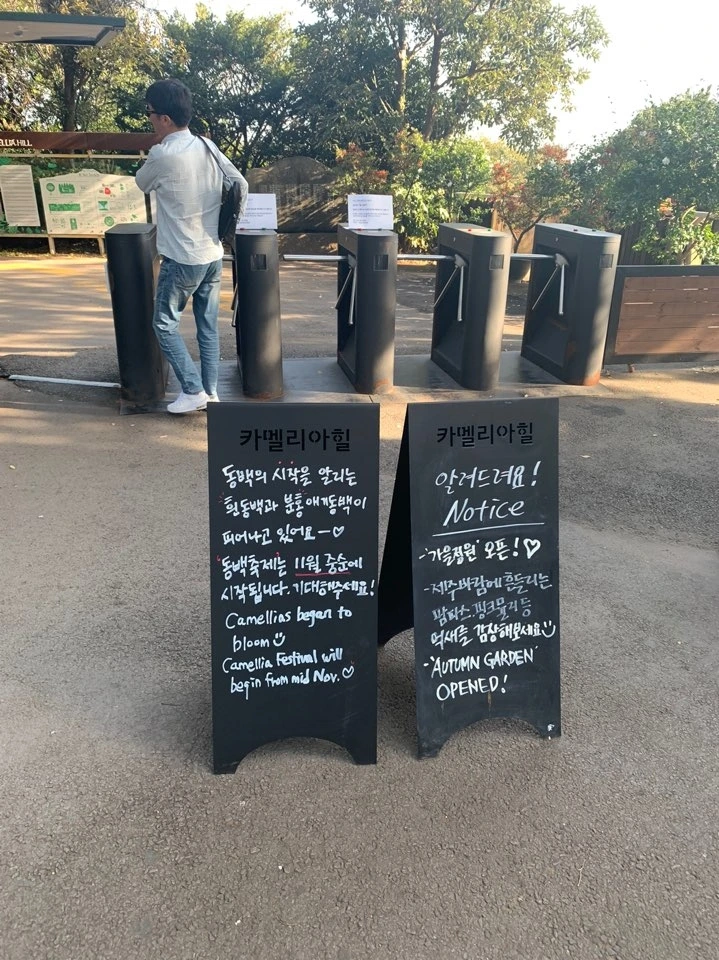 ELLIA HILL
카멜리아힐
동백의 시작을 알리는
흰동백과 분홍애기동백이
피어나고 있어요—♡
동백축제는 11월 중순에
시작됩니다. 기대해주세요!
Camellias began to
bloom
Camellia Festival will
begin from mid Nov. ♡
카멜리아힐
알려드려요!
Notice
-'가을정원' 오픈!♡
-제주바람에 흔들리는
팜파스, 핑크뮬리 등
억새를 감상해보세요
-'AUTUMN GARDEN'
OPENED!